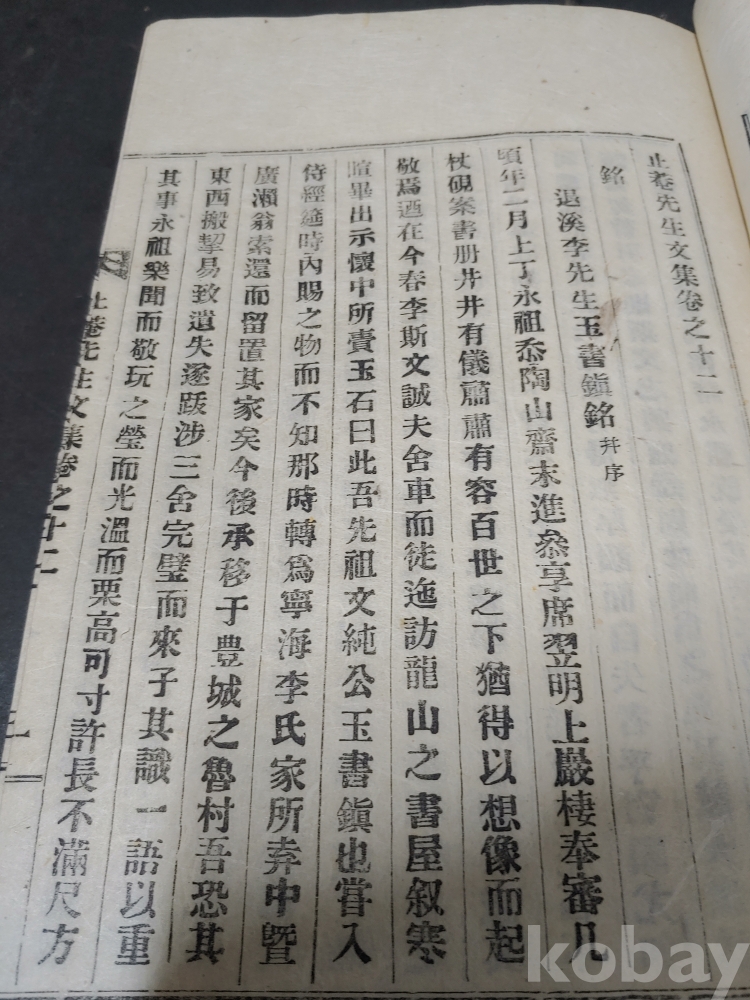 止菴先生文集卷之十二
銘
退溪李先生玉書鎭銘 并序
頃年二月上丁永祖忝陶山齋末進叅享席翌明上巖棲奉審几
杖硯案書册井井有儀肅肅有容百世之下猶得以想像而起
敬焉迺在今春李斯文誠夫舍車而徒迤訪龍山之書屋叙寒
暄畢出示懷中所賫玉石曰此吾先祖文純公玉書鎭也嘗入
侍經筵時內賜之物而不知那時轉爲寧海李氏家所弆中曁
廣瀨翁索還而留置其家矣今後承移于豊城之魯村吾恐其
東西搬挈易致遺失遂跋涉三舍完璧而來子其識一語以重
其事永祖樂聞而敬玩之瑩而光溫而栗高可寸許長不滿尺方
止菴先生文集卷之十二
一
kobay